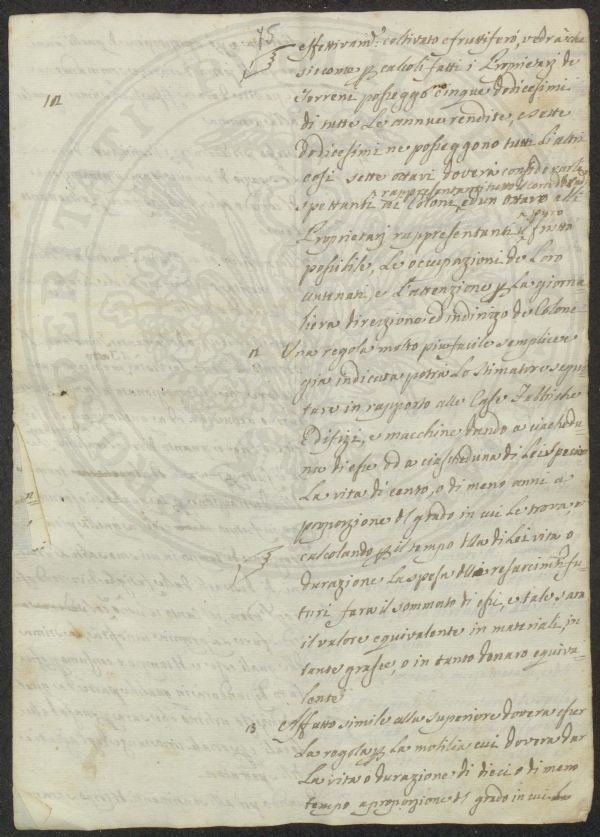 75
effettivam.e coltivato e fruttifero, vedrà che
siccome p calcoli fatti i Proprietarj de
Terreni posseggono cinque dodicesimi
di tutte Le annue rendite, e sette
dodicesimi ne posseggono tutti L'altri
così sette ottavi dovrà considerarli
rappresentanti tutto
spettanti ai Coloni, ed un ottavo alli
puro
Proprietarj rappresentanti il frutto
possibile, Le occupazioni de Loro
antenati, e L'attenzione p La giorna
liera direzione ed indirizzo de Coloni
12 Una regola molto più facile semplice e
già indicata potrà Lo stimatore segui
tare in rapporto alle Case Fabbriche
Edifizj, e macchine dando a ciaschedu
na di esse ed a ciascheduna di Lei specie
La vita di cento, o di meno anni a
proporzione del grado in cui Le trova, e
calcolando p il tempo della di Lei vita o
durazione La spesa delli resarcimti fu
turi farà il sommato di essi, e tale sarà
il valore equivalente in materiali, in
tante grasce, o in tanto denaro equiva
lente
13 Affatto simile alla superiore dovrà esser
La regola p La mobilia cui dovrà dar
La vita o durazione di dieci o di meno
tempo a proporzione del grado in cui